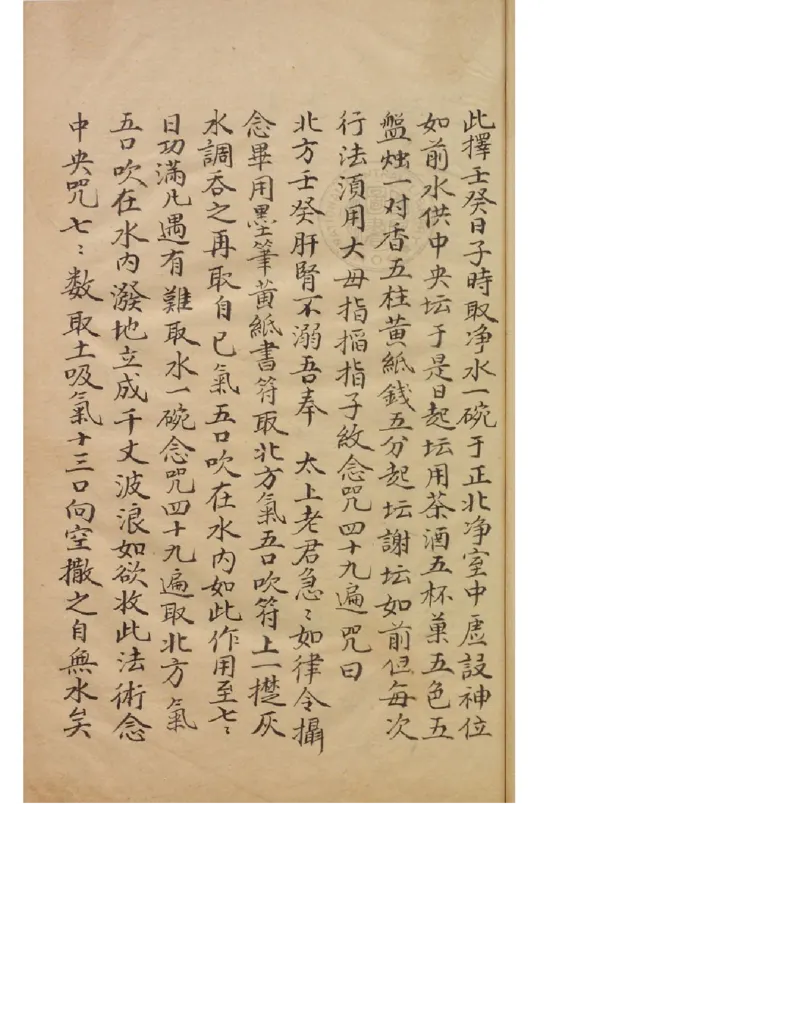 此擇壬癸日子時取净水一碗于正北净室中虛設神位
如前水供中央坛于是日起坛用茶酒五杯菓五色五
盤烛一对香五柱黄紙錢五分起坛謝坛如前但每次
行法湏用大毋指搯指子紋念咒四十九遍咒曰
北方壬癸肝腎不溺吾奉　太上老君急〻如律令攝
念畢用墨筆黄紙書符取北方氣五口吹符上一㩫灰
水調吞之再取自已氣五口吹在水内如此作用至七〻
日功满凢遇有難取水一碗念咒四十九遍取北方氣
五口吹在水内潑地立成千丈波浪如欲收此法術念
中央咒七〻数取土吸氣十三口向空撒之自無水矣